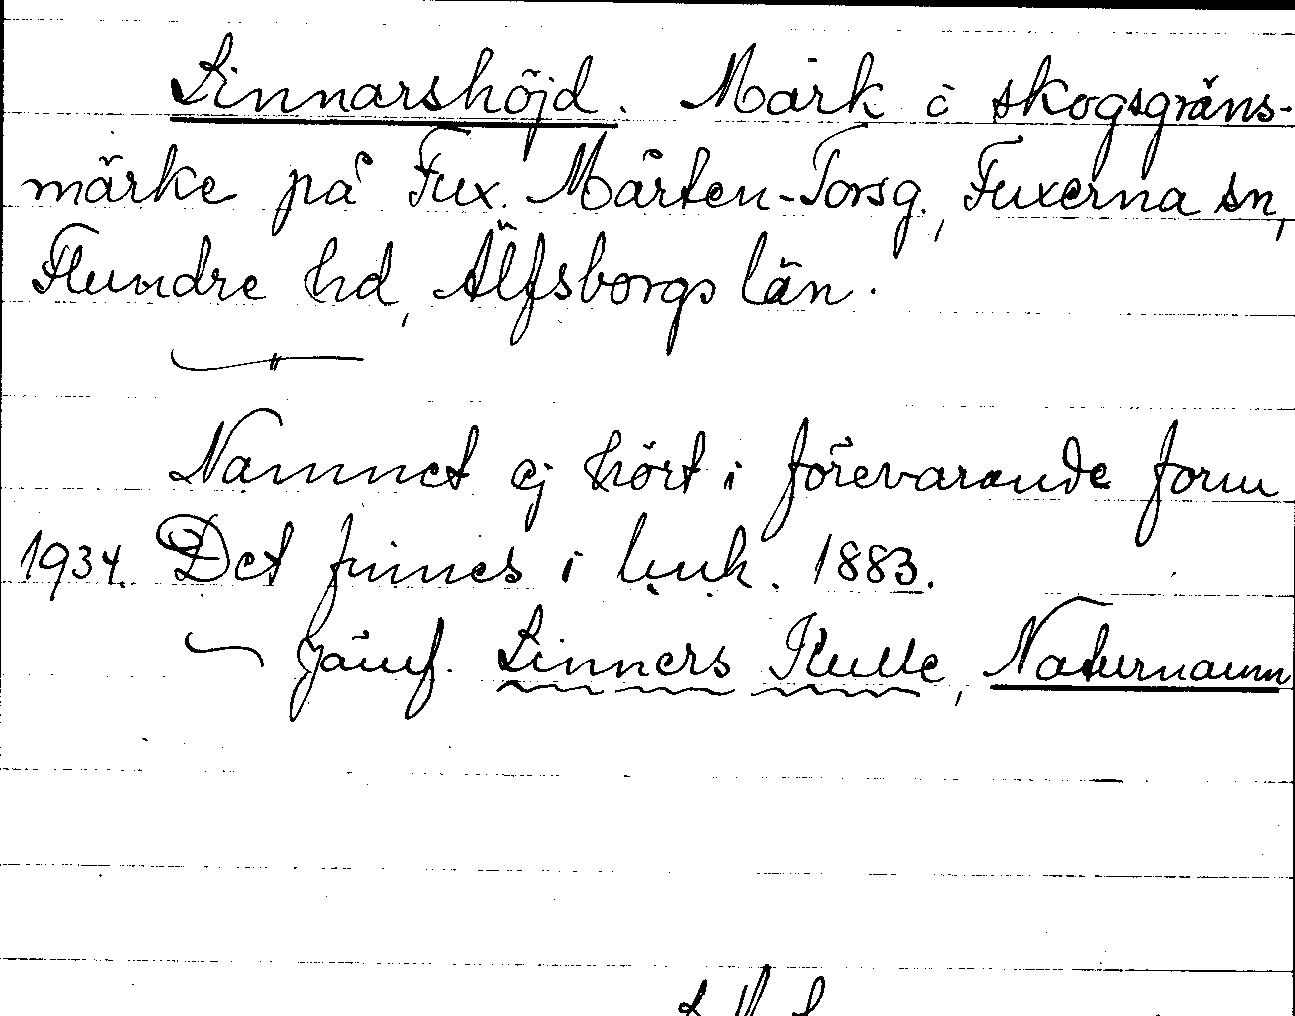 Linnarshöjd. Mark å skogsgräns-
märke på Fux. Mårten-Torsg., Fuxerna sn,
Flundre hd, Älfsborgs län.
Namnet ej hört i förevarande form
1934. Det finnes i luuk. 1883.
Jämf. Linners Kulle, Naturnamn